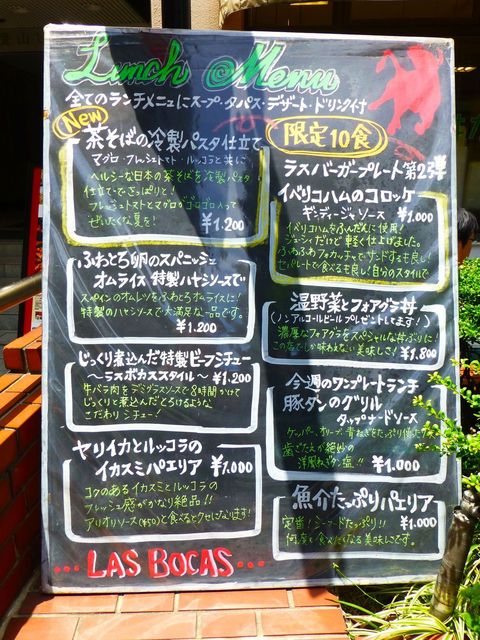 Lunch Menu
全てのランチメニュにスープ・タパス・デザート・ドリンク付
New
茶そばの冷製パスタ仕立て
マグロ・フレッシュトマト・ルッコラと共に
ヘルシーな日本の茶そばを冷製パスタ
仕立てでさっぱりと!
フレッシュトマトとマグロがゴロゴロ入って
ぜいたくな夏を!
¥1.200
ふわとろ卵のスパニッシュ
オムライス 特製ハヤシソースで
スペインのオムレツをふわとろオムライスに!
特製のハヤシソースで大満足な一品です。
¥1.200
じっくり煮込んだ特製ビーフシチュー
〜ラスボカススタイル〜 ¥1.200
牛バラ肉をデミグラスソースで8時間かけて
じっくりと煮込んだとろけるような
こだわりシチュー!
ヤリイカとルッコラの
イカスミパエリア ¥1.000
コクのあるイカスミとルッコラの
フレッシュ感がかなり絶品!!
アリオリソース(¥50)と食べるとクセになります!
限定10食
ラスバーガープレート第2弾
イベリコハムのコロッケ
ギンディージャソース ¥1.000
イベリコハムをふんだんに使用!
ジューシィだけど軽く仕上げました。
ふわふわフォカッチャでサンドするも良し!
セパレートで食べるも良し!自分のスタイルで
温野菜とフォアグラ丼
(ノンアルコールビールプレゼントしてます!)
濃厚なフォアグラをスペシャルな丼ぶりに!
この店でしか味わえない美味しさ! ¥1.800
今週のワンプレートランチ
豚タンのグリル
タップナードソース
ケッパー、オリーブ、青ねぎをたっぷり使った
歯ごたえが絶妙の
洋風ねぎタン塩!! ¥1.000
魚介たっぷりパエリア
定番!シーフードたっぷり!! ¥1.000
何度も食べたくなる美味しさです。
... LAS BOCAS ...